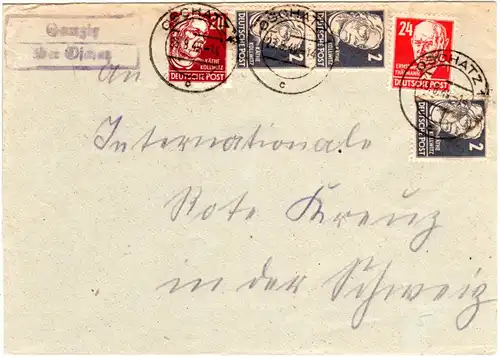 Ganzig
über Oschatz
OSCHATZ
20
KÄTHE
KOLLWITZ
DEUTSCHE POST
2
KÄTHE
KOLLWITZ
DEUTSCHE POST
2
KÄTHE
KOLLWITZ
DEUTSCHE POST
24
ERNST
THÄLMANN
DEUTSCHE POST
OSCHATZ
2
KÄTHE
KOLLWITZ
DEUTSCHE POST
c
c
An
Internationale
Rote Kreuz
in der Schweiz